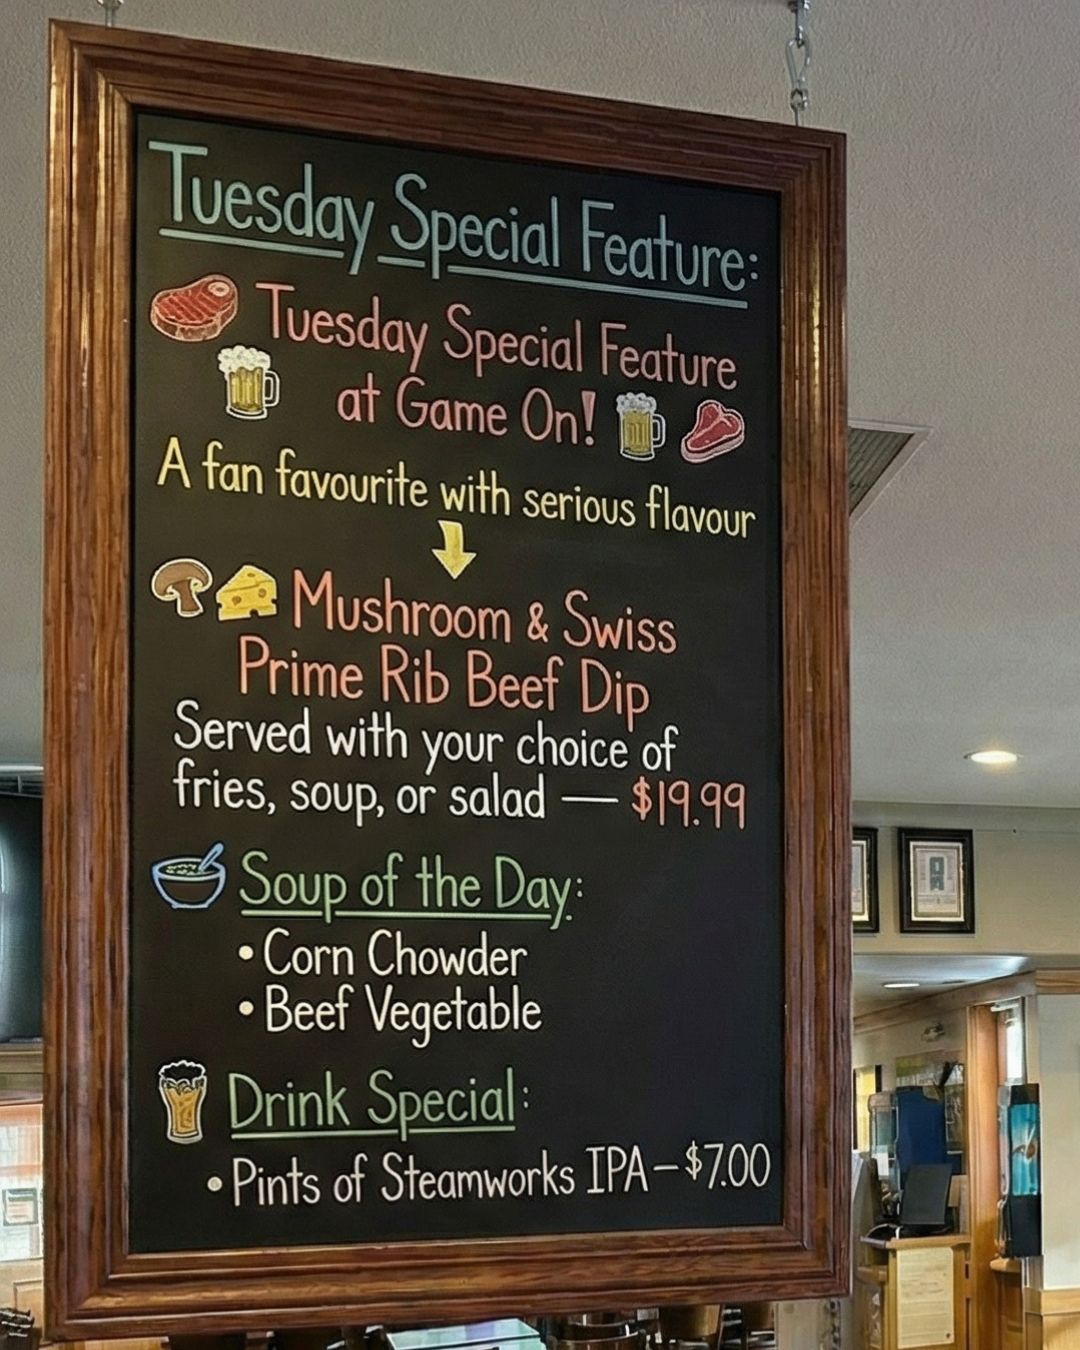 Tuesday Special Feature:
Tuesday Special Feature
at Game On!
A fan favourite with serious flavour
Mushroom & Swiss
Prime Rib Beef Dip
Served with your choice of
fries, soup, or salad — $19.99
Soup of the Day:
• Corn Chowder
• Beef Vegetable
Drink Special:
• Pints of Steamworks IPA – $7.00